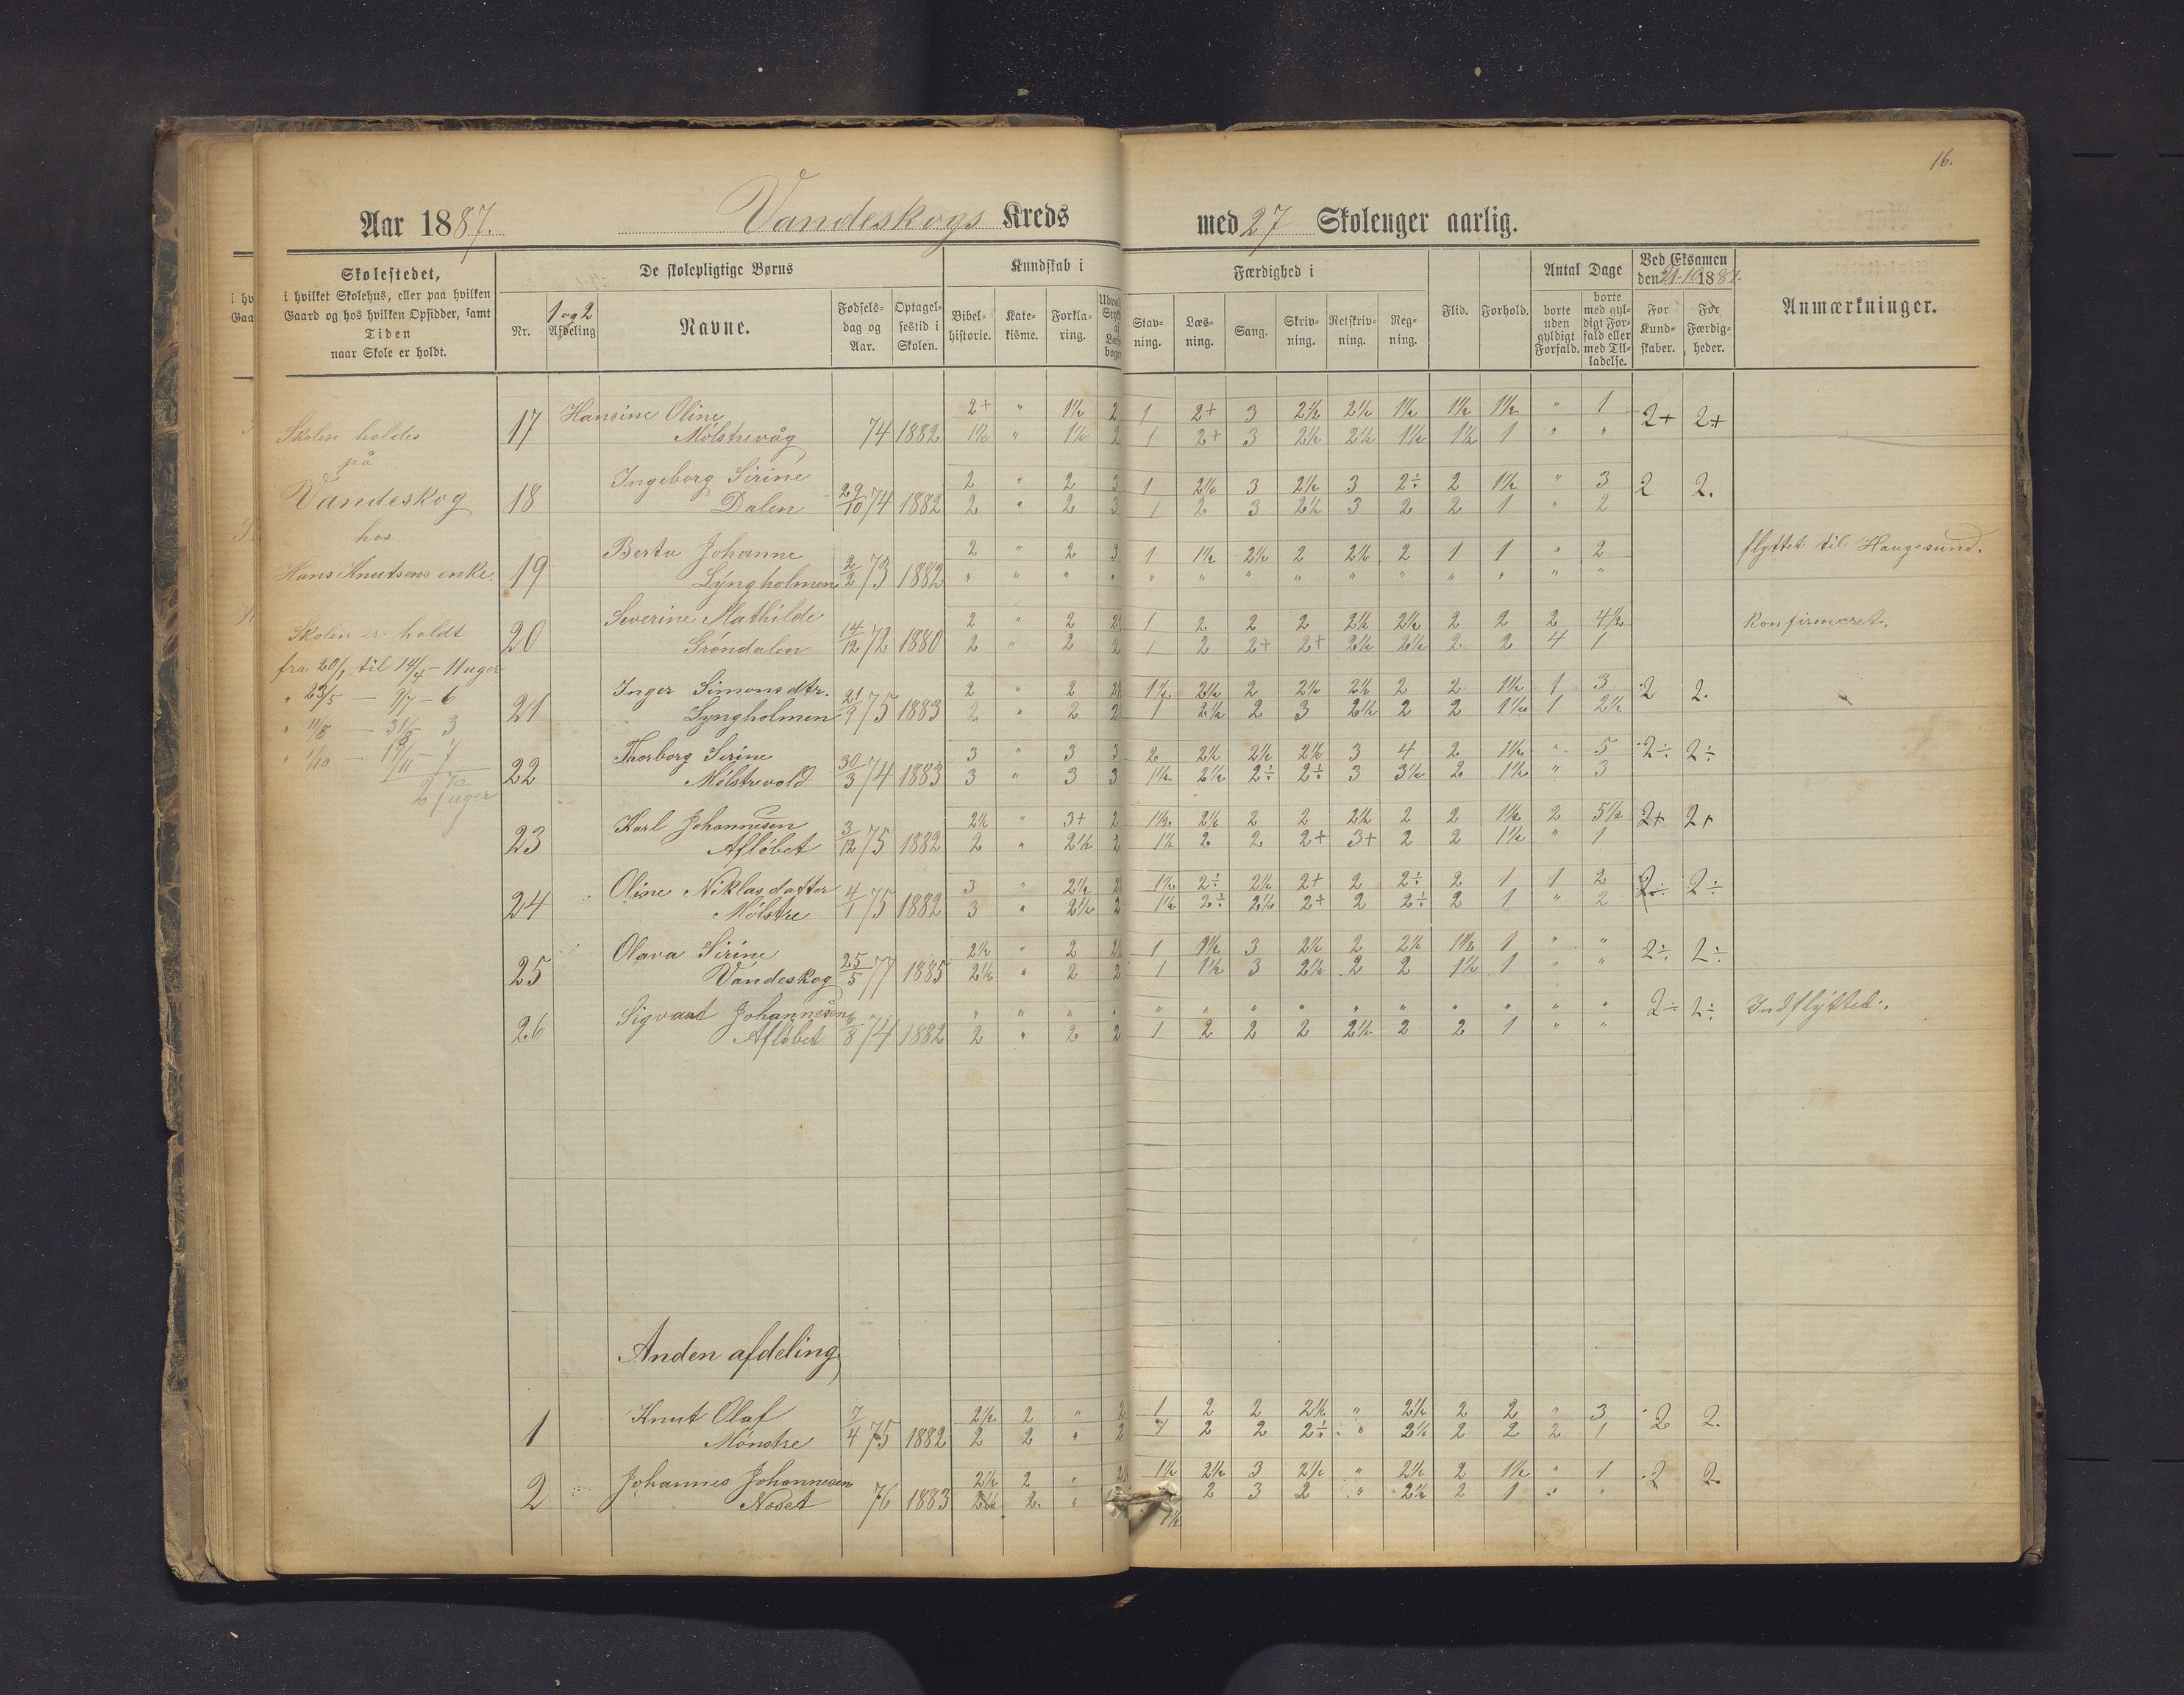 16.
Aar 1887. Vandeskogs Kreds med 27 Skolenger aarlig.
Skolestedet,
i hvilket Skolehus, eller paa hvilken
Gaard og hos hvilken Opsidder, samt
Tiden
naar Skole er holdt.
De skolepligtige Børns
Nr.
1 og 2
Afdeling
Navne.
Fødsels-
dag og
Aar.
Optagel-
sestid i
Skolen.
Kundskab i
Bibel-
historie.
Kate-
kisme.
Forkla-
ring.
Færdighed i
Stav-
ning.
Læs-
ning.
Sang.
Skriv-
ning.
Retskriv-
ning.
Reg-
ning.
Flid.
Forhold.
Antal Dage
borte
uden
gyldigt
Forfald.
borte
med gyl-
digt For-
fald eller
med Til-
ladelse.
Ved Eksamen
For
Kund-
skaber.
For
Færdig-
heder.
Anmærkninger.
Skolen holdes
på
Vandeskog
hos
Hans Knutsens enke.
Skolen er holdt
fra 20/1 til 14/4 - 11 uger
" 23/5 — 9/7 - 6
" 11/8 — 31/8 3
" 1/10 — 19/11 - 7
27 uger
17 Hansine Oline 2+ " 1½ 2 1 2+ 3 2½ 2½ 1½ 1½ 1½ " 1 2+ 2+
Mølstrevåg 74 1882 1½ " 1½ 2 1 2+ 3 2½ 2½ 1½ 1½ 1 " "
18 Ingeborg Sirine 2 " 2 3 1 2½ 3 2½ 3 2÷ 2 1½ " 3 2 2.
Dalen 29/10 74 1882 2 " 2 3 1 2 3 2½ 3 2 2 1 " 2
19 Berta Johanne 2 " 2 3 1 1½ 2½ 2 2½ 2 1 1 " 2 flyttet til Haugesund.
Lyngholmen 2/2 73 1882 " " " " " " " " " " " " " "
20 Severine Mathilde 2 " 2 2 1 2 2 2 2½ 2½ 2 2 2 4½ Konfirmeret.
Grøndalen 14/12 72 1880 2 " 2 2 1 2 2+ 2+ 2½ 2½ 2 2 4 1
21 Inger Simonsdtr. 2 " 2 2 1½ 2½ 2 2½ 2½ 2 2 1½ 1 3 2 2.
Lyngholmen 21/9 75 1883 2 " 2 2 1 2½ 2 3 2½ 2 2 1½ 1 2½
22 Thorborg Sirine 3 " 3 3 2 2½ 2½ 2½ 3 4 2 1½ " 5 2÷ 2÷
Mølstrevold 30/3 74 1883 3 " 3 3 1½ 2½ 2÷ 2÷ 3 3½ 2 1½ " 3
23 Karl Johannesen 2½ " 3+ 2 1½ 2½ 2 2 2½ 2 2 1½ 2 5½ 2+ 2+
Afløbet 3/12 75 1882 2 " 2½ 2 1½ 2 2 2+ 3+ 2 2 1½ " 1
24 Oline Niklasdatter 3 " 2½ 2 1½ 2÷ 2½ 2+ 2 2÷ 2 1 1 2 2÷ 2÷
Mølstre 4/1 75 1882 3 " 2½ 2 1½ 2÷ 2½ 2+ 2 2÷ 2 1 " 2
25 Olava Sirine 2½ " 2 2 1 1½ 3 2½ 2 2½ 1½ 1 " " 2÷ 2÷
Vandeskog 25/5 77 1885 2½ " 2 2 1 1½ 3 2½ 2 2 1½ 1 " "
26 Sigvard Johannesen " " " " " " " " " " " " " " 2÷ 2÷ Indflyttet.
Afløbet 6/8 74 1882 2 " 2 2 1 2 2 2 2½ 2 2 1 " "
Anden afdeling
1 Knut Olaf 2½ 2 " 2 1 2 2 2½ " 2½ 2 2 " 3 2 2.
Mønstre 7/4 75 1882 2 2 " 2 2 2 2÷ " 2½ 2 2 2 1
2 Johannes Johannesen 2½ 2 " 2 1½ 2½ 3 2½ " 2½ 2 1½ " 1 2 2
76 1883 2½ 2. " 2 3 2 " 2½ 2 1 " "
1½